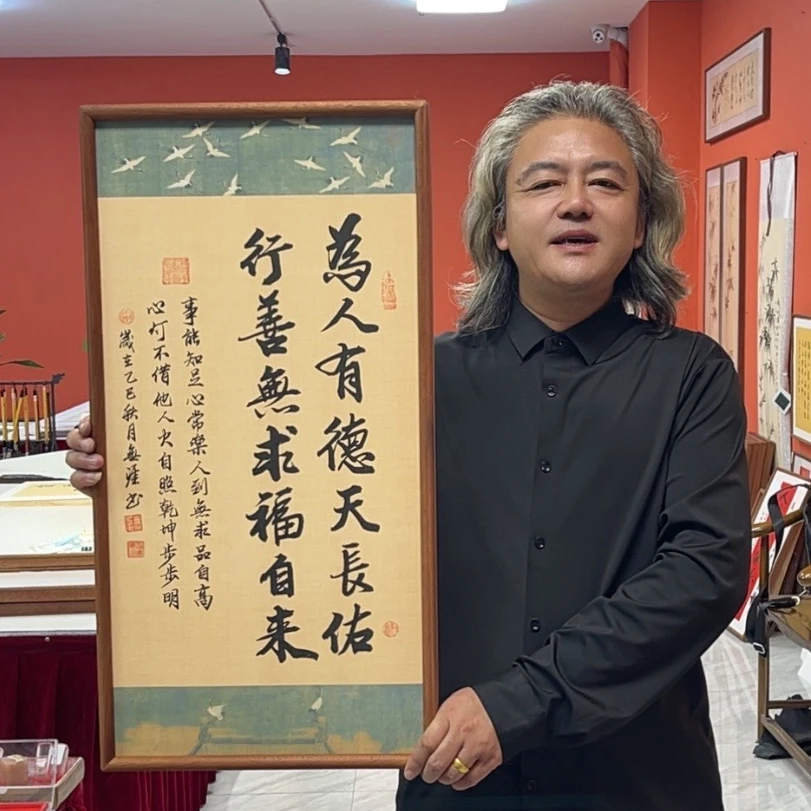 為人有德天長佑
行善無求福自来
事能知足心常樂人到無求品自高
心灯不借他人火自照乾坤步步明
歲在乙巳秋月無涯书